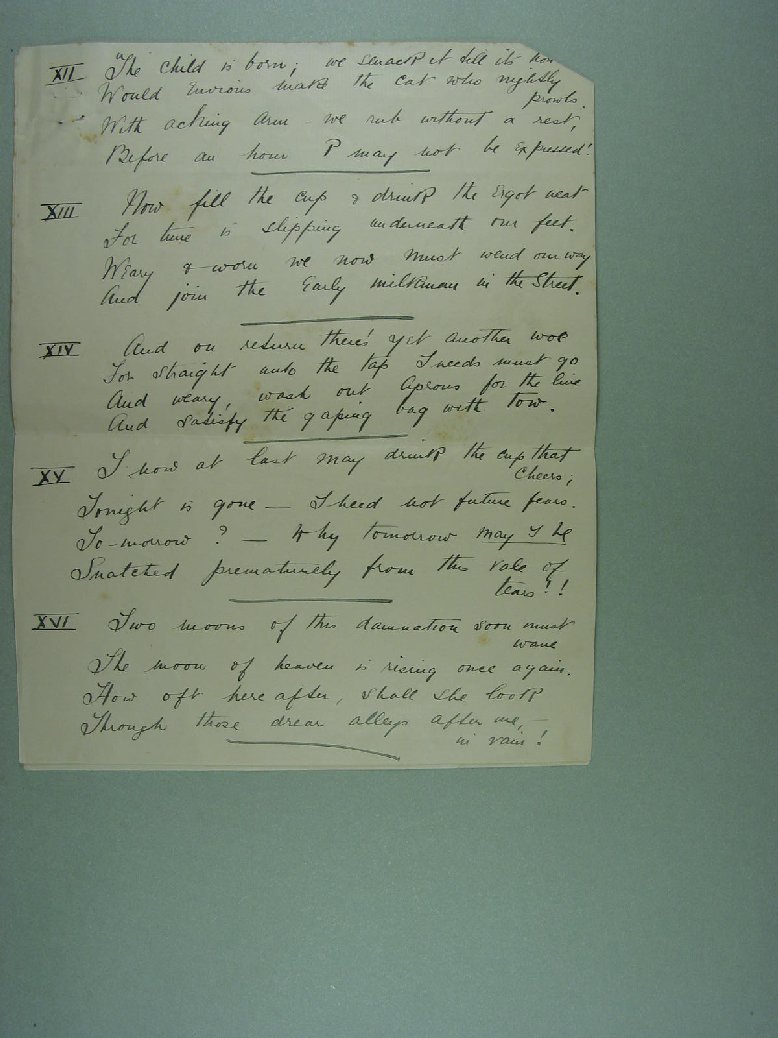 XII "The child is born; we smack it till its
Would envious make the cat who nightly
prowls.
With aching arm - we rub without a rest,
Before an hour P may not be expressed!
XIII Now fill the cup & drink the Ergot neat
For time is slipping underneath our feet.
Weary & worn we now must wend our way
And join the Early milkman in the Street.
XIV And on return there's yet another woe
For straight unto the tap I needs must go
And weary, wash out aprons for the line
And satisfy the gaping bag with tow.
XV I now at last may drink the cup that
Cheers,
Tonight is gone — I heed not future fears.
To-morrow? — Why tomorrow may I be
Snatched prematurely from this vale of
tears!!
XVI Two moons of this damnation soon must
wane
The moon of heaven is rising once again.
How oft hereafter, shall she look
Through those drear alleys after me, —
in vain!